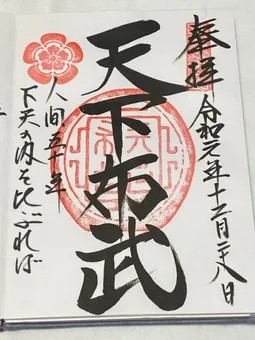 奉拝
令和元年十二月二十八日
天下布武
人間五十年
下天の内を比ぶれば